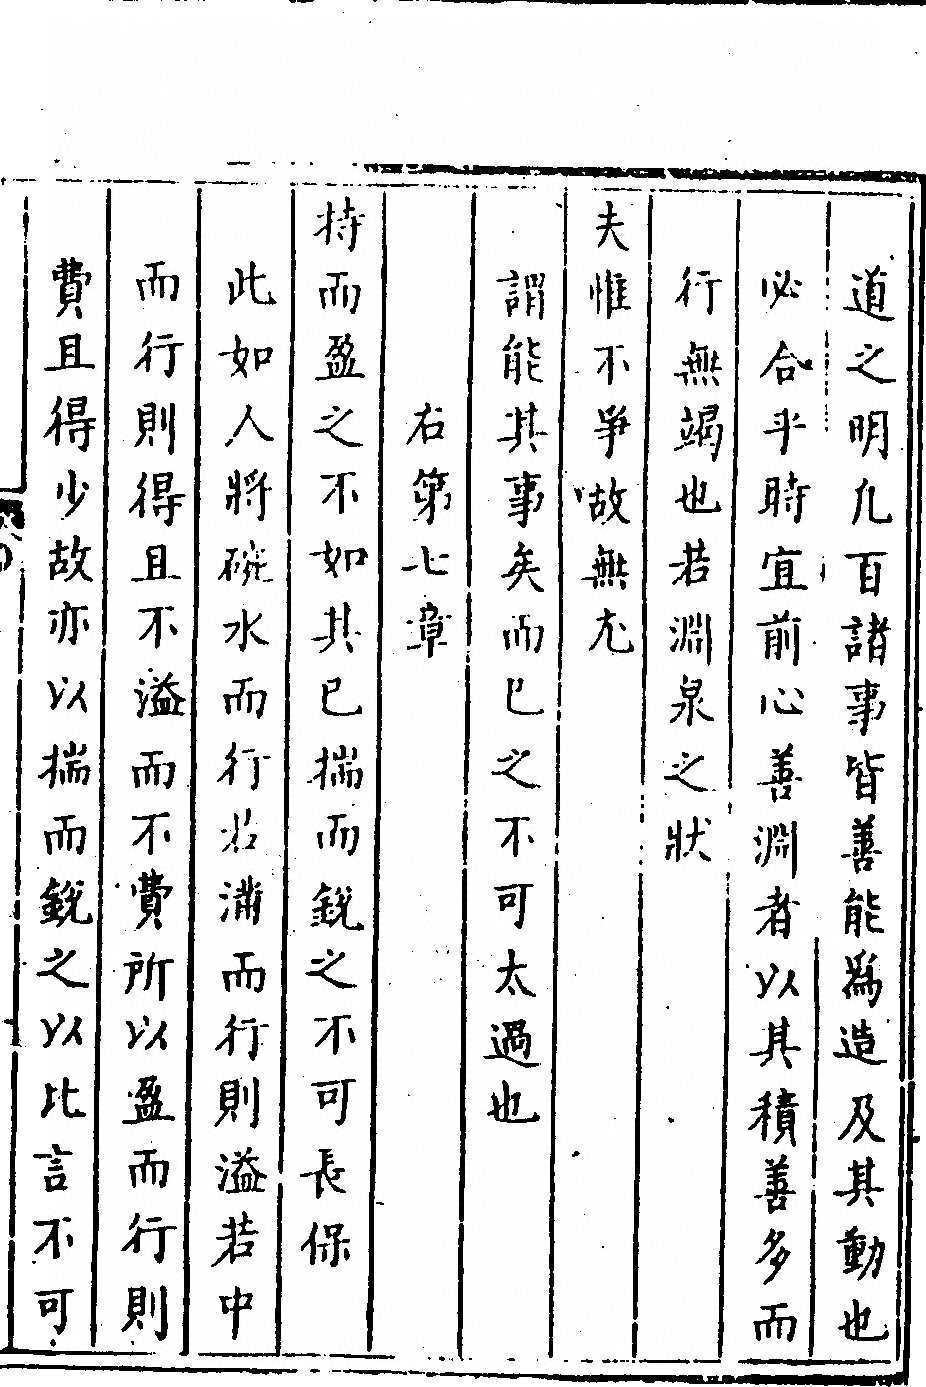 道之明凢百諸事皆善能為造及其動也
必合乎時宜前心善淵者以其積善多而
行無竭也若淵泉之狀
夫惟不爭故無尤
謂能其事矣而已之不可太過也
右第七章
持而盈之不如其已揣而銳之不可長保
此如人將碗水而行若滿而行則溢若中
而行則得且不溢而不費所以盈而行則
費且得少故亦以揣而銳之以比言不可